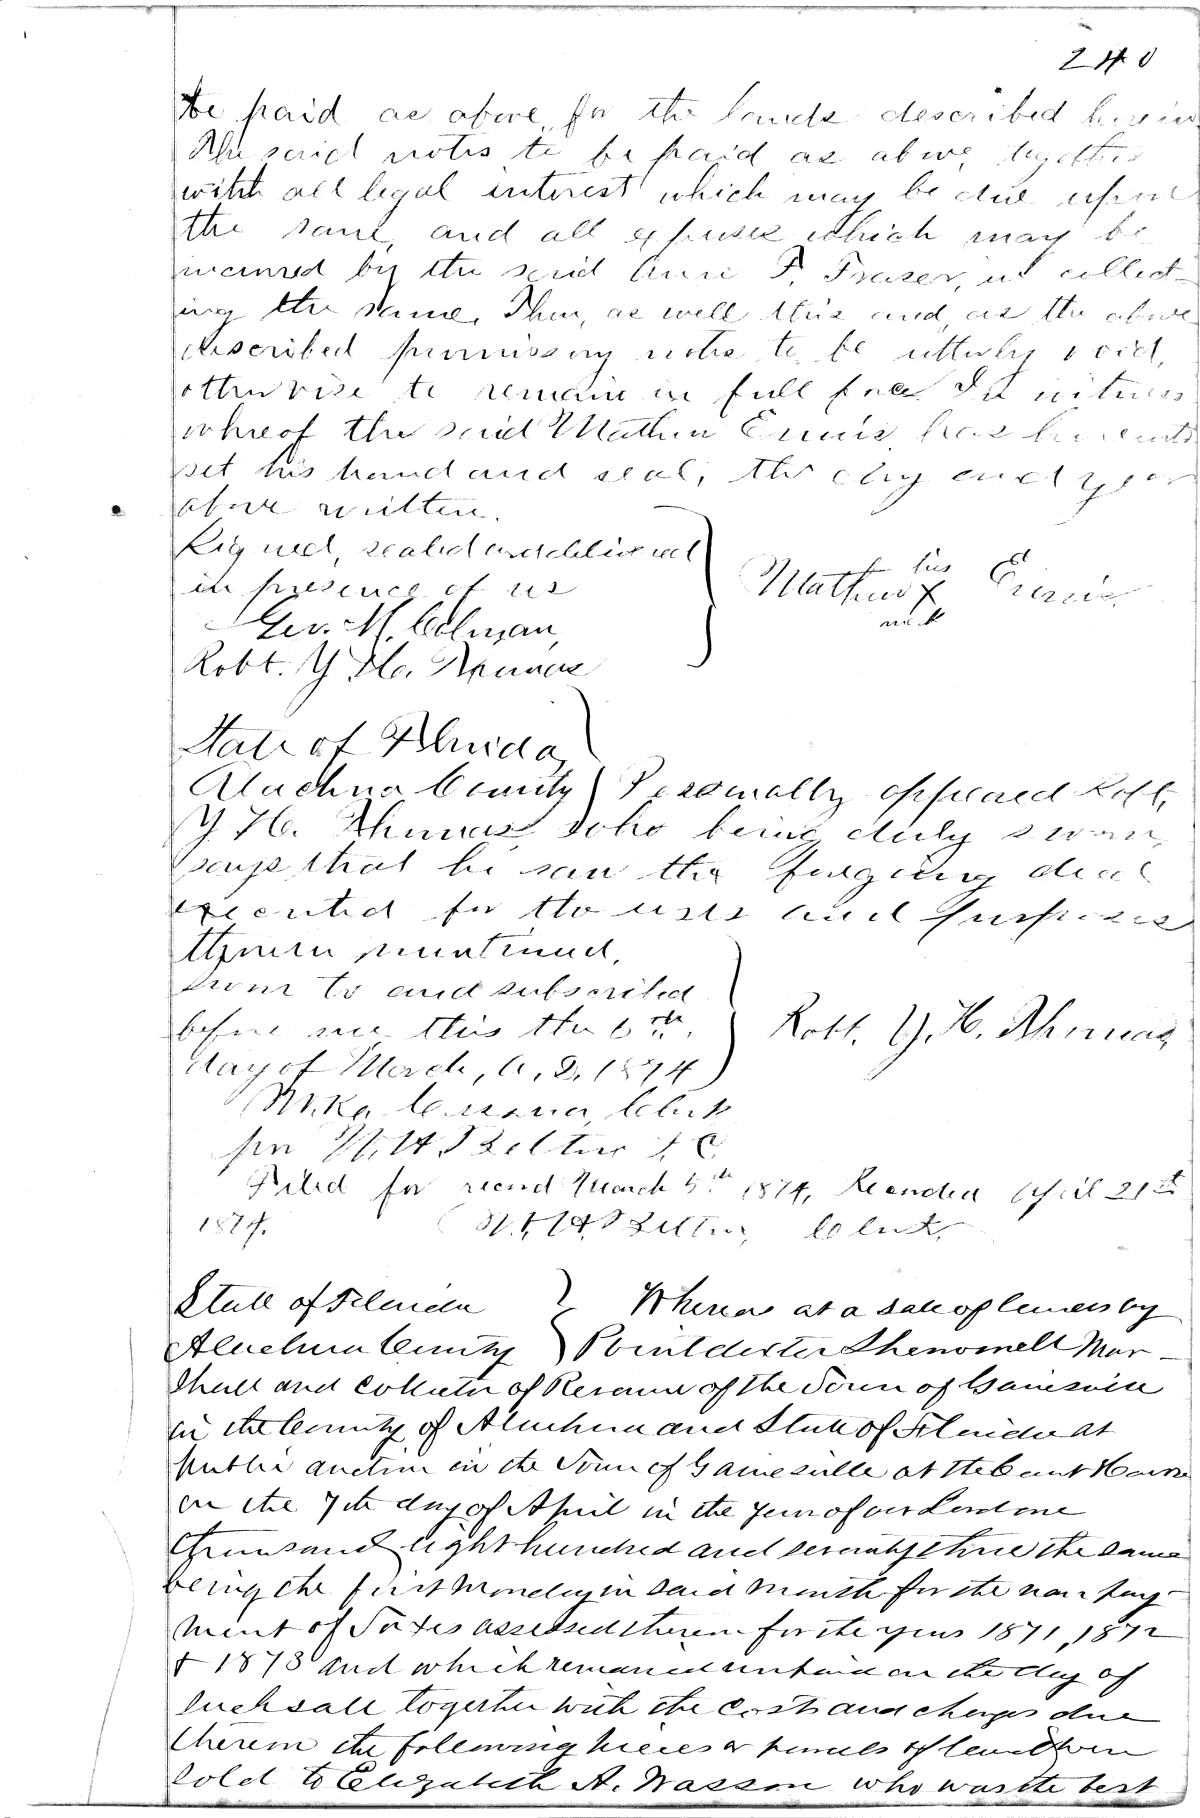 240
be paid as above, for the lands described herein
The said notes to be paid as above, together
with all legal interest which may be due upon
the same, and all expenses which may be
incurred by the said Anne F. Fraser, in collect-
ing the same, Then, as well this and, as the above
described promissory notes to be utterly void,
otherwise to remain in full force. In witness
whereof the said Mathew Ennis has hereunto
set his hand and seal, the day and year
above written.
Signed, sealed and delivered
in presence of us
Geo. M. Colman,
Robt. Y. H. Thomas
Mathew his X mark Ennis
State of Florida,
Alachua County Personally appeared Robt.
Y. H. Thomas who being duly sworn,
says that he saw the forgoing deed
executed for the uses and purposes
therein mentioned.
Sworn to and subscribed
before me this the 6th
day of March, A, D, 1874
Robt. Y. H. Thomas
Clerk
per
Filed for record March 5th 1874, Recorded April 21st
1874. Clerk.
State of Florida Whereas at a sale of lands by
Alachua County Poindexter Mar-
shall and Collector of Revenue of the Town of Gainesville
in the County of Alachua and State of Florida at
public auction in the Town of Gainesville at the Court House
on the 7th day of April in the year of our Lord one
thousand eight hundred and seventy three the same
being the first Monday in said month for the non pay-
ment of Taxes assessed therein for the years 1871, 1872
& 1873 and which remained unpaid on the day of
such sale together with the costs and charges due
therein the following pieces or parcels of land were
sold to Elizabeth A. Wasson who was the best